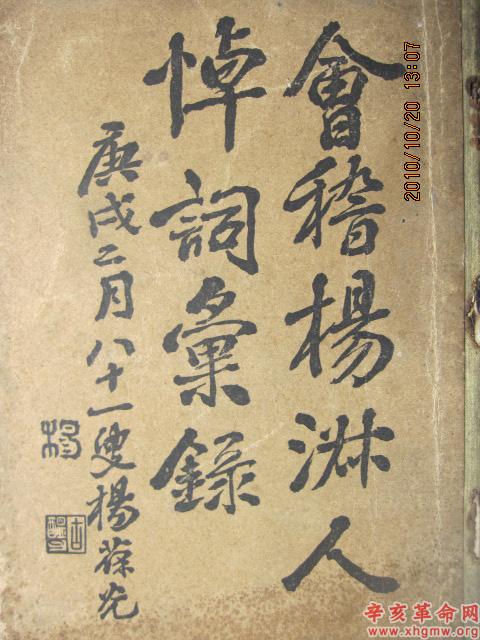 會稽楊淋人
悼詞彙錄
庚戌二月八十一叟楊葆光
楊
2010/10/20 13:07
辛亥革命网
www.xhgmw.org